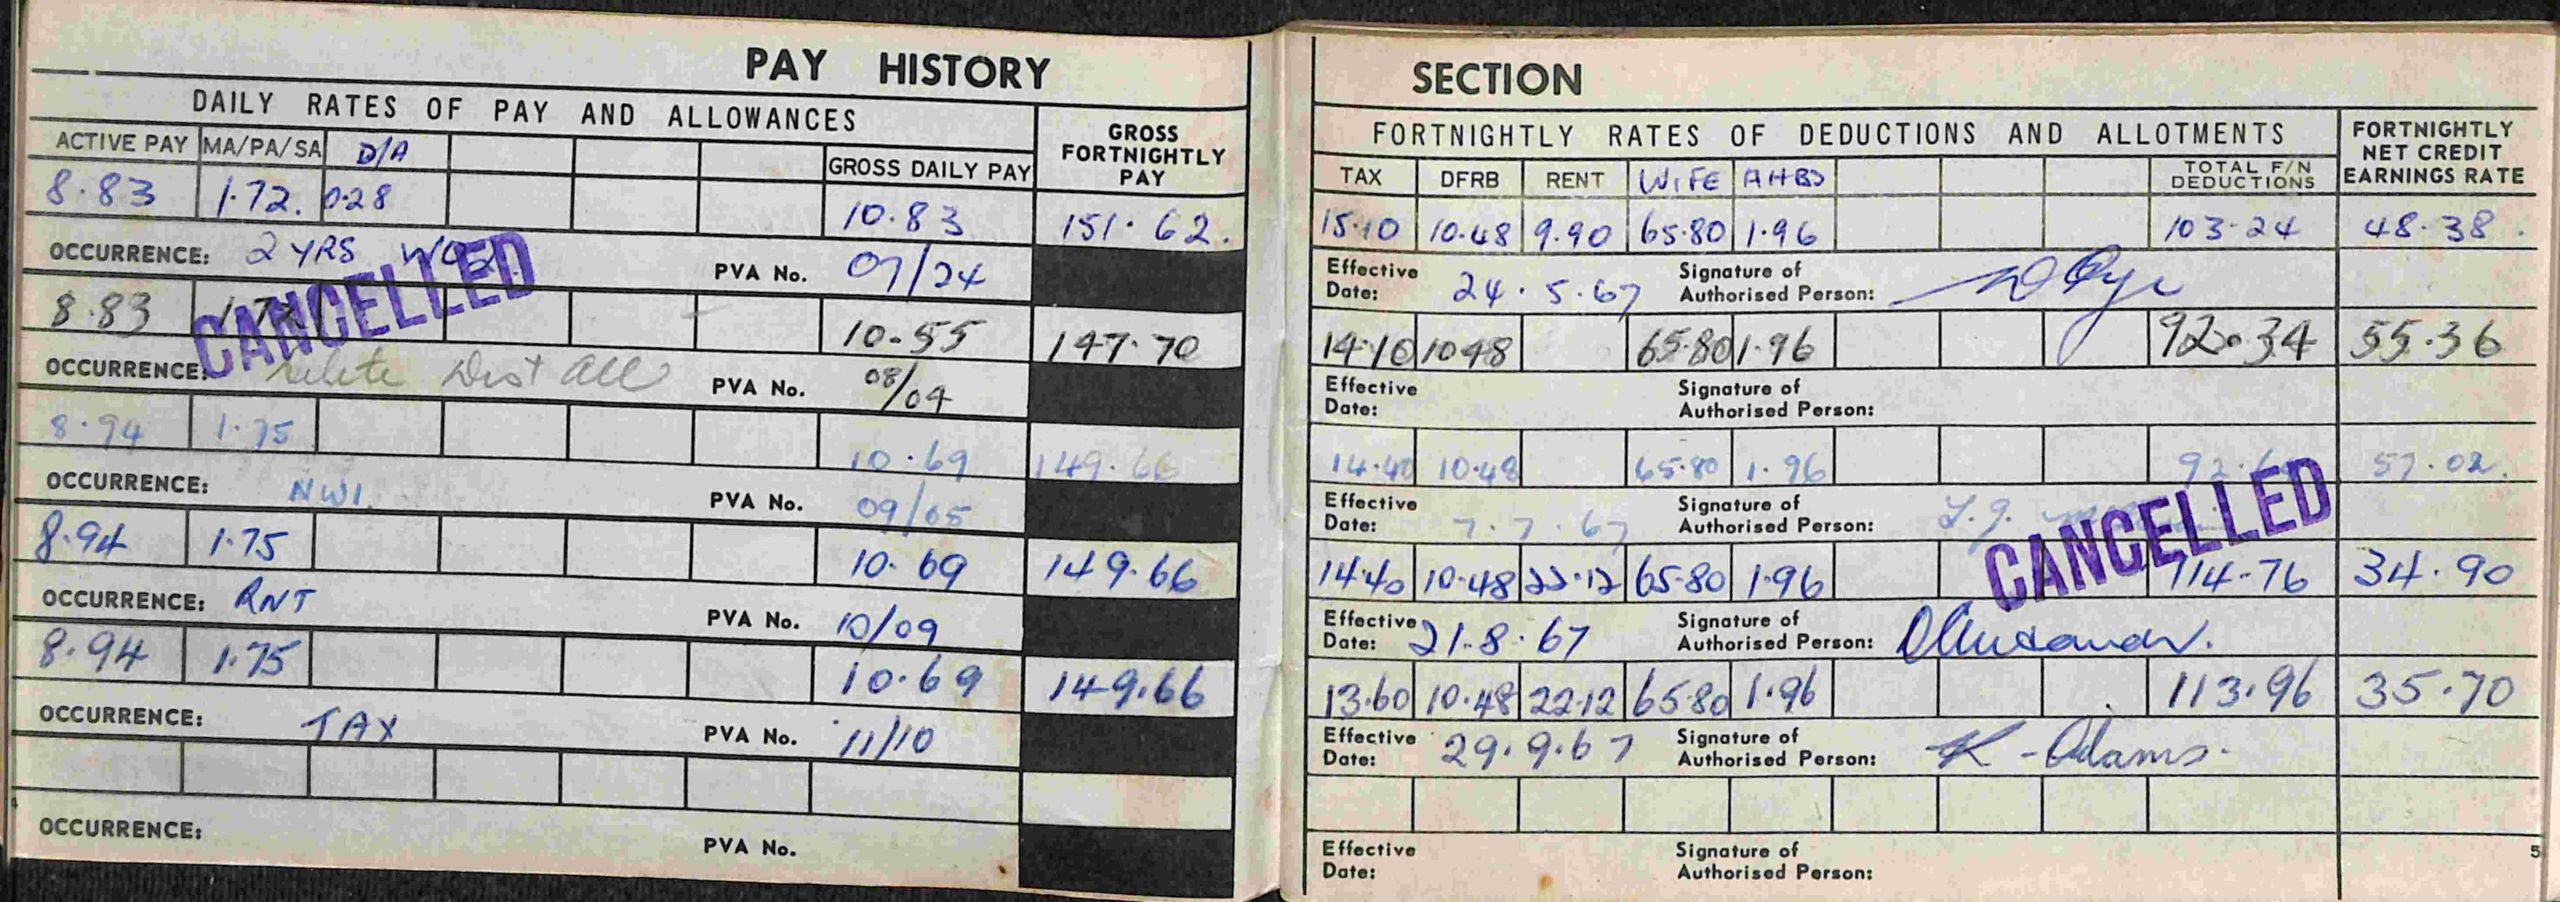 PAY HISTORY SECTION
DAILY RATES OF PAY AND ALLOWANCES GROSS FORTNIGHTLY PAY
ACTIVE PAY MA/PA/SA D/A GROSS DAILY PAY
8.83 1.72. 0.28 10.83 151.62.
OCCURRENCE: 2 YRS WO2. PVA No. 07/24
CANCELLED
8.83 1.72 10.55 147.70
OCCURRENCE: delete Dist All PVA No. 08/04
8.94 1.75 10.69 149.66
OCCURRENCE: NWI. PVA No. 09/05
8.94 1.75 10.69 149.66
OCCURRENCE: RNT PVA No. 10/09
8.94 1.75 10.69 149.66
OCCURRENCE: TAX PVA No. 11/10
OCCURRENCE: PVA No.
FORTNIGHTLY RATES OF DEDUCTIONS AND ALLOTMENTS FORTNIGHTLY NET CREDIT EARNINGS RATE
TAX DFRB RENT WIFE AHBS TOTAL F/N DEDUCTIONS
15.10 10.48 9.90 65.80 1.96 103.24 48.38.
Effective Date: 24.5.67 Signature of Authorised Person:
14.10 10.48 65.80 1.96 92.34 55.36
Effective Date: Signature of Authorised Person:
14.40 10.48 65.80 1.96 57.02.
Effective Date: 7.7.67 Signature of Authorised Person:
CANCELLED
14.40 10.48 22.12 65.80 1.96 114.76 34.90
Effective Date: 21.8.67 Signature of Authorised Person:
13.60 10.48 22.12 65.80 1.96 113.96 35.70
Effective Date: 29.9.67 Signature of Authorised Person: K-Adams.
Effective Date: Signature of Authorised Person:
5